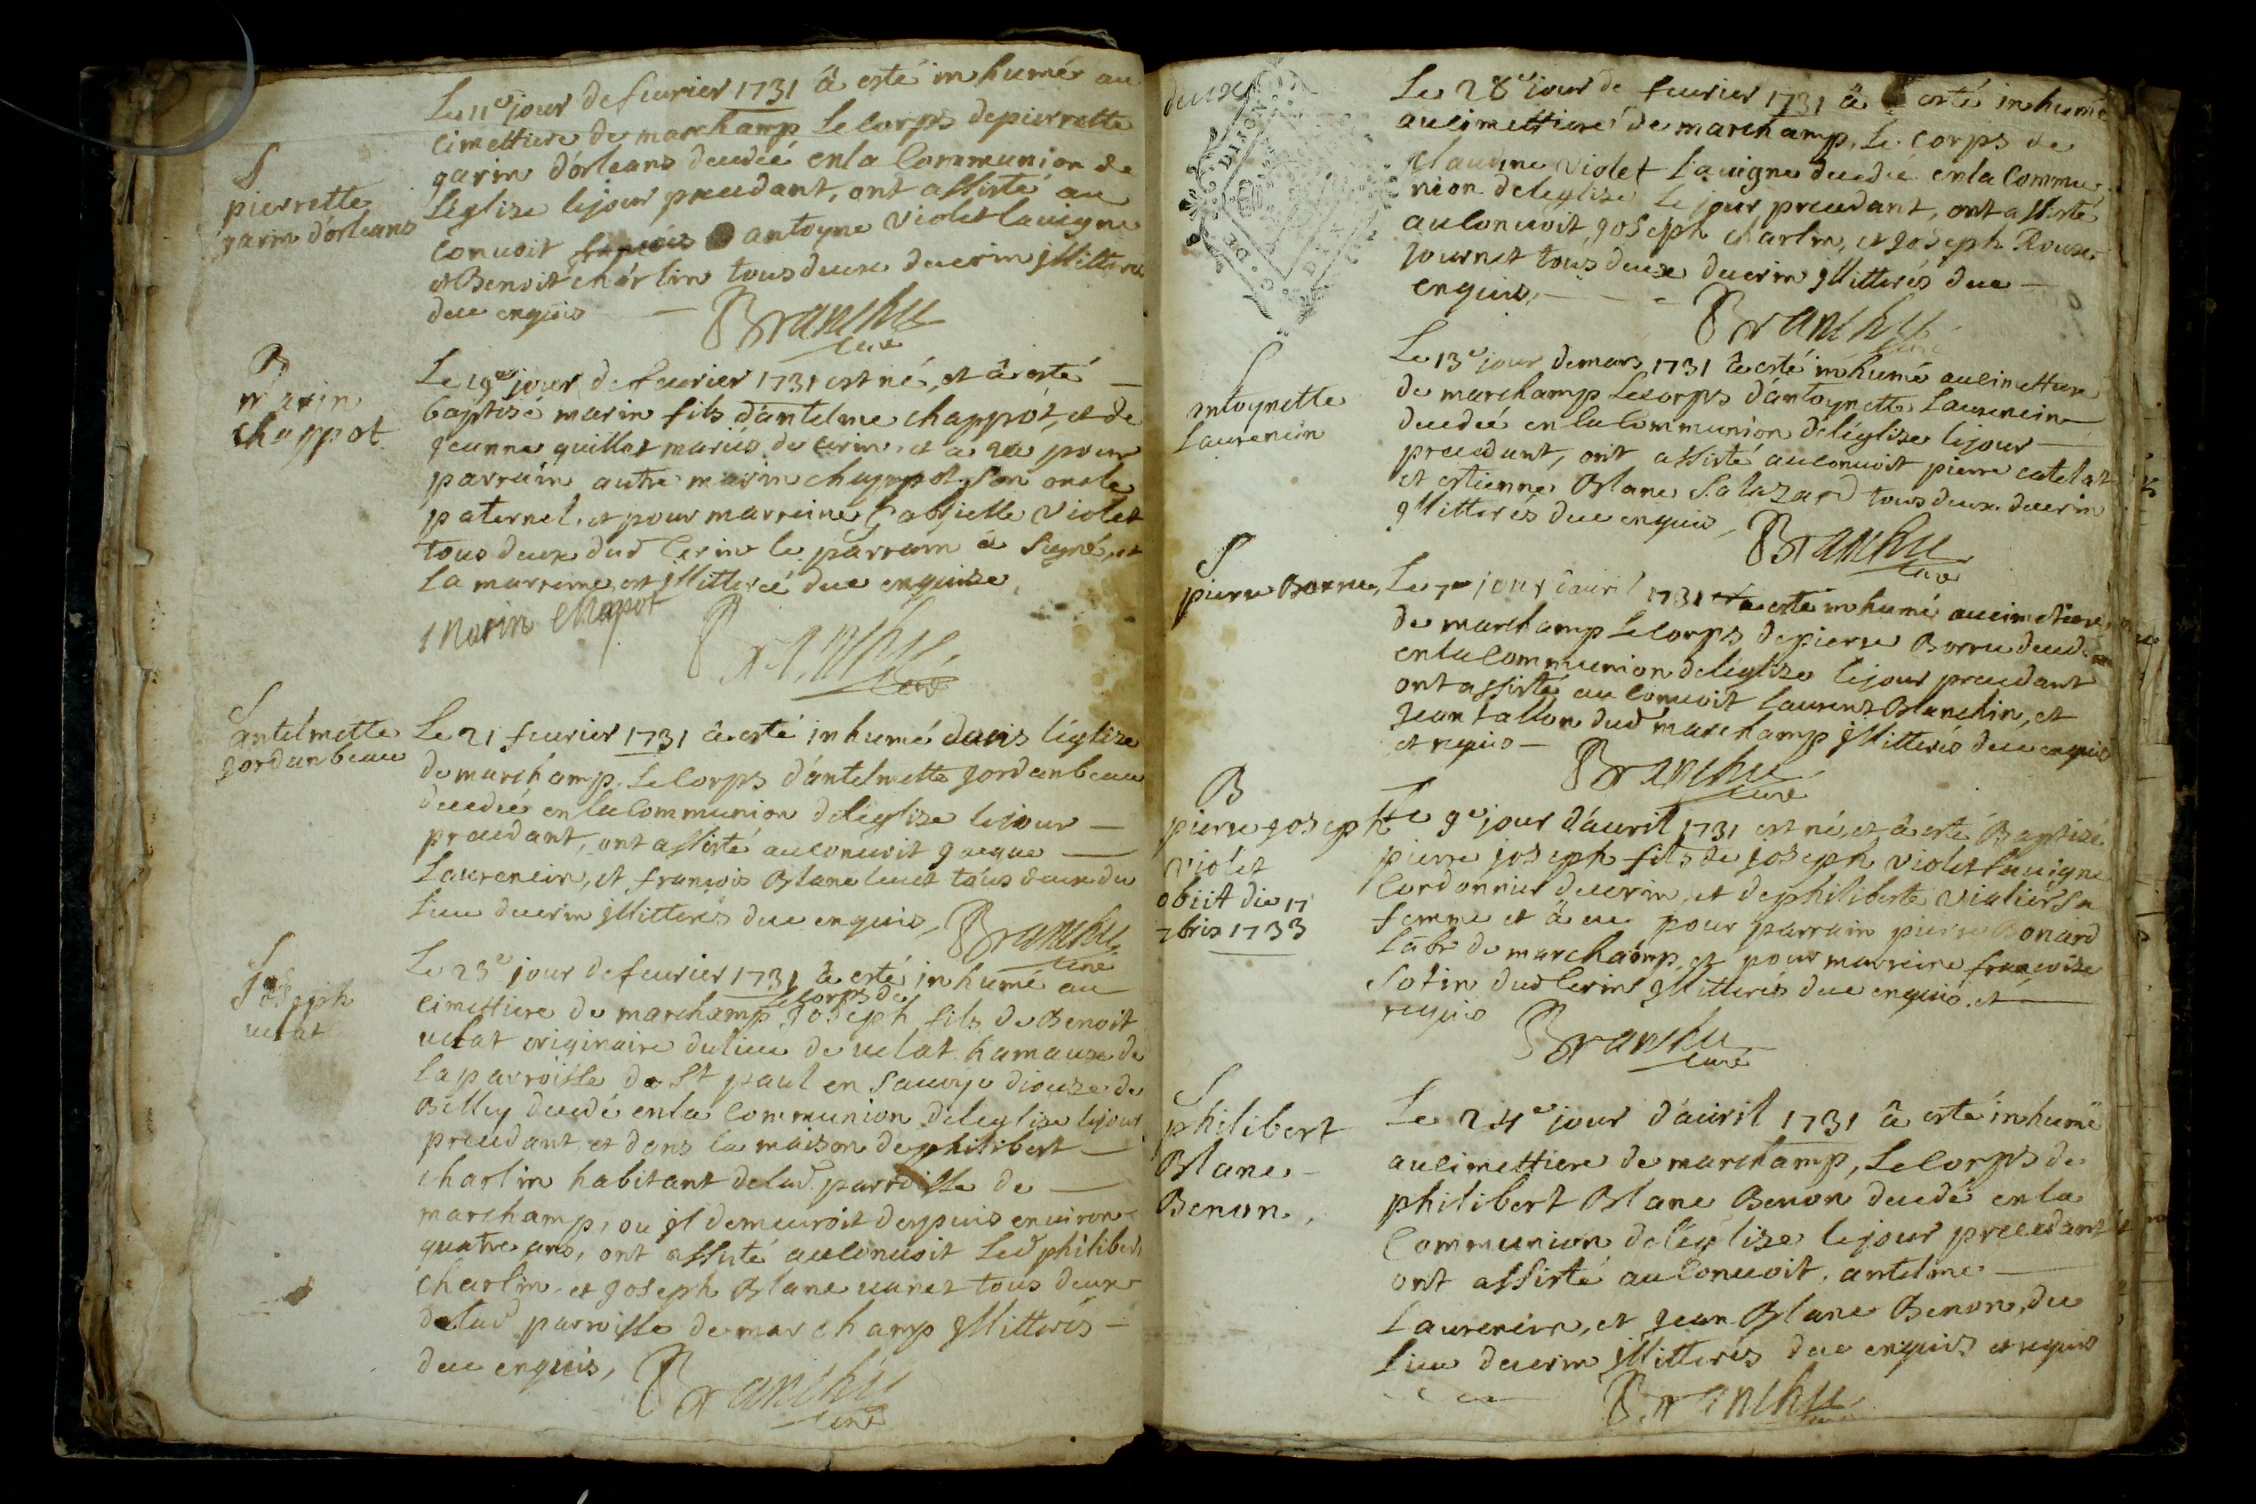 Le 11e jour de feurier 1731 â esté inhumér au
cimettiere de marchamp Le corps de pierrette
garin d'orleans decedée en la Communion de
Léglize le jour precedant, ont assisté au
S
pierrette
garin d'orleans
conuoit françois antoyne violet lauigne
et Benoit charlin tous deux de cerin Jllitteres
de ce enquis
Branchu
curé
B
marin
chappot
Le 19e jour de feurier 1731 est né, et â esté
baptisé marin fils d'antelme chappot, et de
jeanne guillot mariés de cerin, et a eu pour
parrain autre marin chappot son oncle
paternel, et pour marreine Gabrielle violet
tous deux dud Cerin le parrain â signé, et
La marreine est Jllitterée de ce enquise
Marin Chapot
Branchu
curé
S
antelmette
gordanbeau
Le 21 feurier 1731 â esté inhumé dans l'églize
de marchamp, Le Corps d'antelmette gordanbeau
decedée en la Communion deléglize le jour
precedant, ont assisté au conuoit jacque
Laurencin, et françois Blanc lucet tous deux du
Lieu de cerin Jllitterés de ce enquis
Branchu
curé
S
Joseph
uelat
Le 23e jour de feurier 1731 â esté inhumé au
le corps de
cimettiere de marchamp Joseph fils de Benoit
uelat originaire du lieu de uelat hamaux de
la parroisse de St paul en Sauoye diouze de
Belley decedé en la Communion deleglize le jour
precedant, et dans la maison de philibert
charlin habitant de lad. parroisse de
marchamp, ou jl demeuroit depuis enuiron
quatre ans, ont assisté au conuoit Led philibert
charlin, et joseph Blanc uanet tous deux
de lad parroisse de marchamp Jllitterés
de ce enquis,
Branchu
curé
deux
G. DE DIJON
Le 28e jour de feurier 1731 â esté inhumé
au cimettiere de marchamp, Le corps de
claudine violet Lauigne decedée en la Commu
nion deleglize Le jour precedant, ont assisté
au Conuoit, joseph charlin, et joseph Roux
journet tous deux de cerin Jllitterés de ce
enquis,
Branchu
curé
S
antoynette
Laurencin
Le 13e jour de mars 1731 â esté inhumé au cimettiere
de marchamp Le corps d'antoynette Laurencin
decedée en la Communion deléglize le jour
precedant, ont assisté au conuoit pierre catelat
et estienne Blanc Salazard tous deux de cerin
Jllitterés de ce enquis,
Branchu
curé
S
pierre Borru,
Le 7e jour d'auril 1731 â esté inhumé au cimetiere
de marchamp Le corps de pierre Borru deced
en la Communion deléglize le jour precedant
ont assisté au conuoit Laurent Blanchin, et
jean tallon dud marchamp Jllitterés de ce enquis
et requis
Branchu
curé
B
pierre joseph
violet
obiit die 17
7bris 1733
Le 9e jour d'auril 1731 est né, et â esté Baptizé
pierre joseph fils de joseph violet lauigne
Cordonnier de cerin, et de philiberte violier sa
femme et â eu pour parrain pierre Bonard
labr de marchamp, et pour marreine françoise
Sotin dud Cerin Jllitterés de ce enquis, et
requis
Branchu
curé
S
philibert
Blanc
Benon,
Le 24e jour d'auril 1731 â esté inhumé
au cimettiere de marchamp, Le corps de
philibert Blanc Benon decedé en la
Communion deléglize le jour precedant
ont assisté au Conuoit, antelme
Laurencin, et jean Blanc Benon, du
Lieu de cerin Jllitterés de ce enquis et requis
Branchu
curé